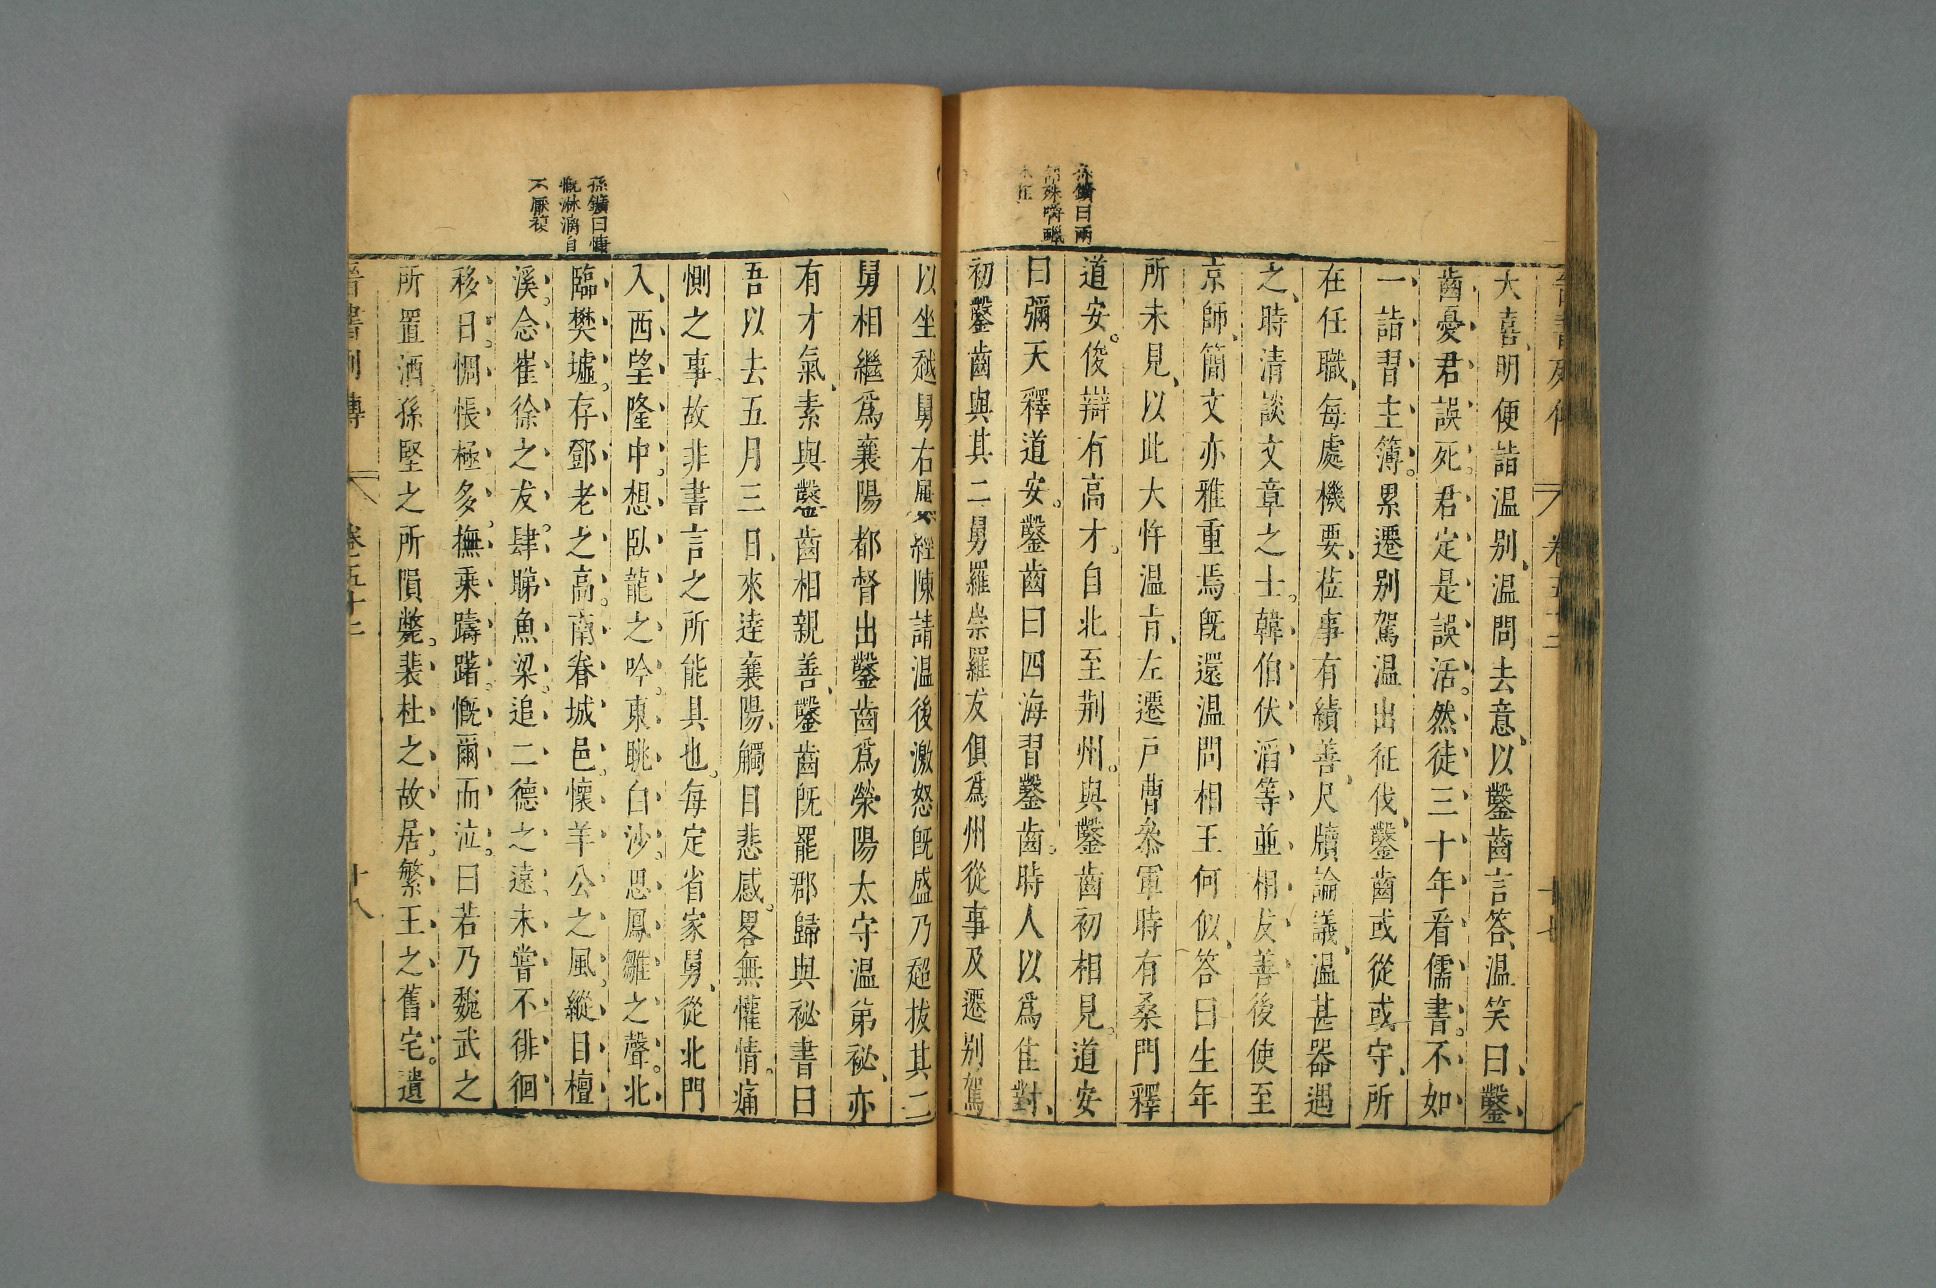 孫鑛曰兩
大喜、明便詣温别、温問去意、以鑿齒言答、温笑曰、鑿
齒憂君誤死、君定是誤活。然徒三十年看儒書。不如
一詣習主簿。累遷别駕温出征伐、鑿齒或從或守、所
在任職、每處機要、莅事有績、善尺牘論議、温甚器遇
之、時清談文章之士。韓伯伏滔等並相友善後使至
京師、簡文亦雅重焉既還温問相王何似、答曰生年
所未見、以此大忤温肯、左遷戸曹叅軍時有桑門釋
道安。俊辯有高才。自北至荆州。與鑿齒初相見。道安
曰彌天釋道安。鑿齒曰四海習鑿齒。時人以爲佳對、
初鑿齒與其二舅羅崇羅友俱爲州從事及遷别駕
孫鑛曰慷
慨淋漓自
不厭複
以坐越舅右屢經陳請温後激怒既盛乃超拔其二
舅相繼爲襄陽都督出鑿齒爲滎陽太守温弟祕、亦
有才氣、素與鑿齒相親善、鑿齒既罷郡歸與祕書曰
吾以去五月三日、來逹襄陽、觸目悲感。畧無懽情。痛
惻之事、故非書言之所能具也。每定省家舅、從北門
入、西望隆中。想臥龍之吟。東眺白沙。思鳳雛之聲。北
臨樊墟。存鄧老之高。南眷城邑。懷羊公之風。縱目檀
溪。念崔徐之友。肆睇魚梁。追二德之遠、未嘗不徘徊
移日。惆悵極多。撫乘躊躇。慨爾而泣。曰若乃魏武之
所置酒、孫堅之所隕斃。裴杜之故居。繁王之舊宅。遺
晉書列傳 卷五十二 十八